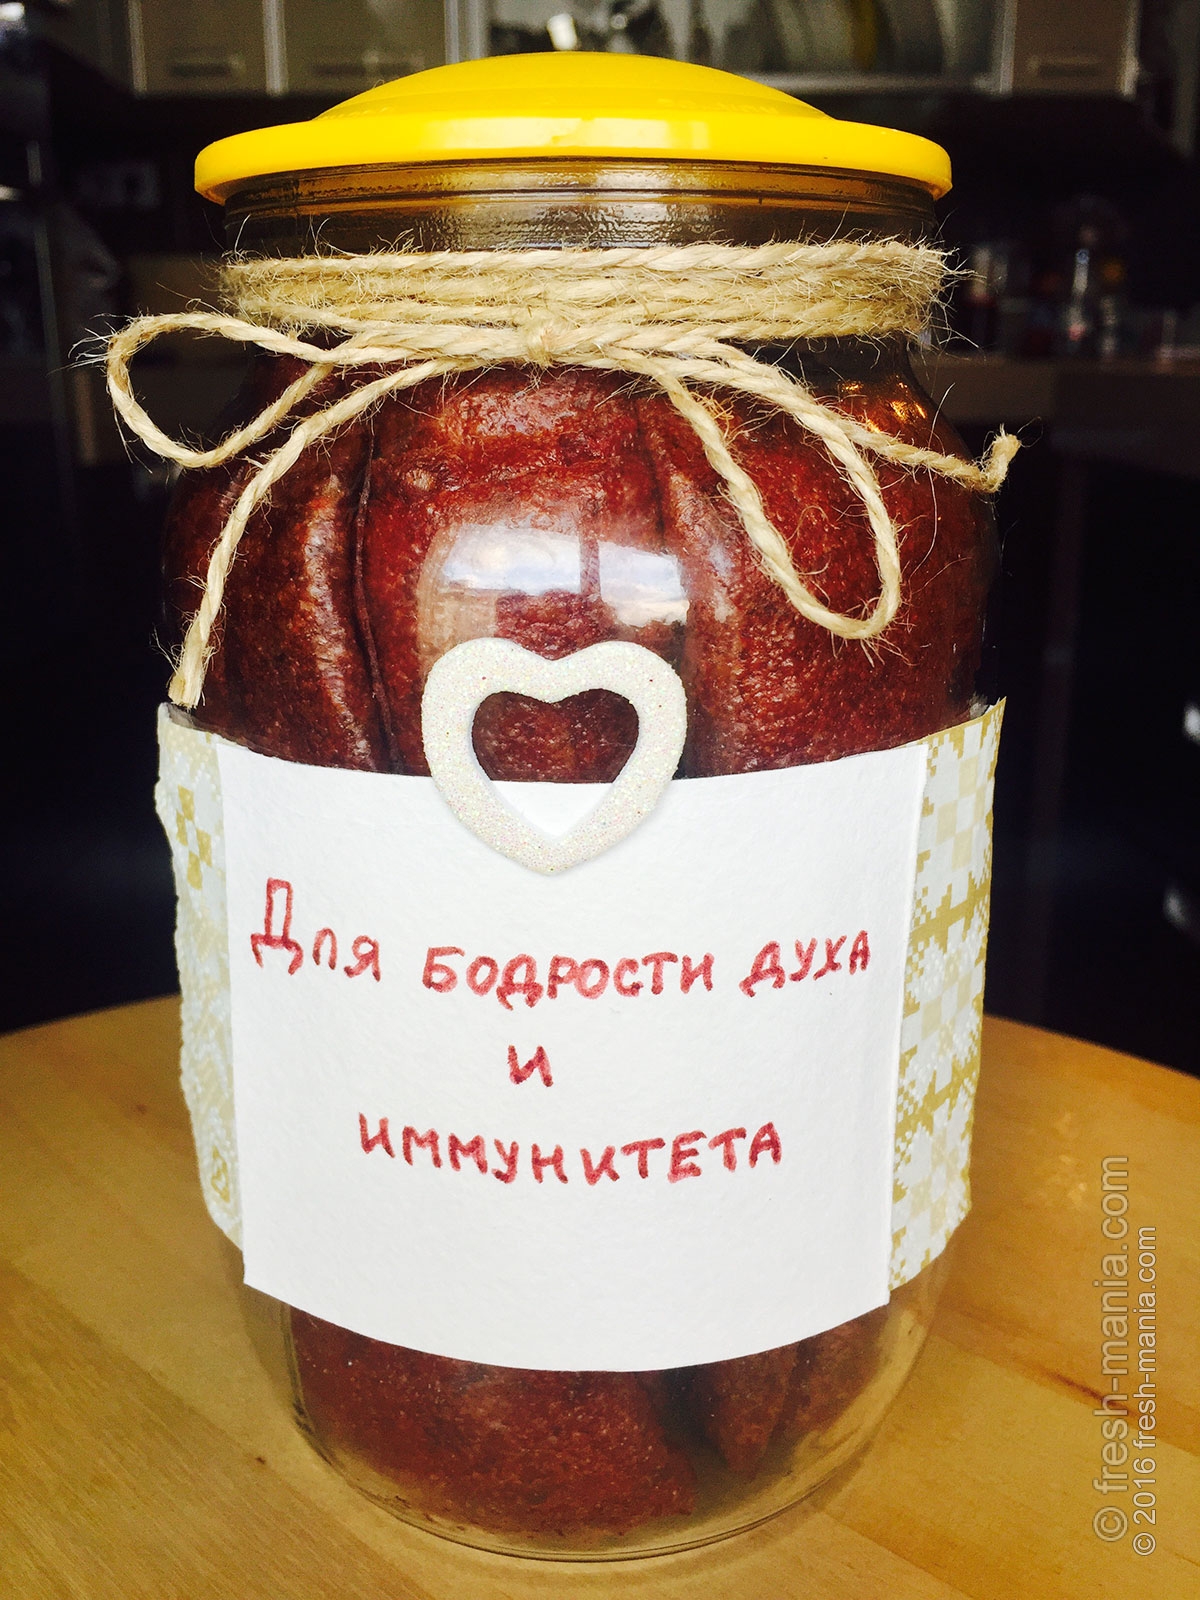 Для бодрости духа
и
иммунитета
© fresh-mania.com
© 2016 fresh-mania.com